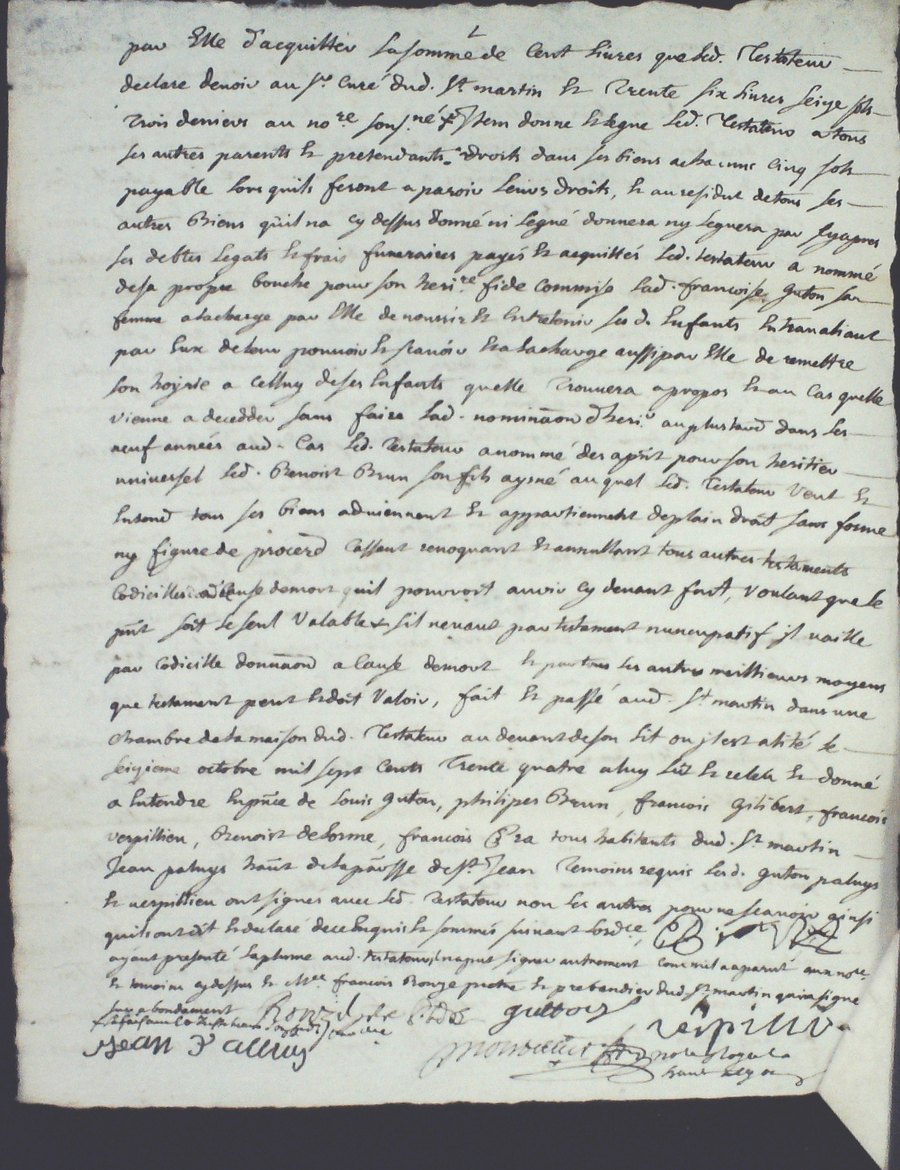 par Elle d'acquitter la somme de Cent livres que led. Testateur
declare devoir au sr. Curé dud. St martin Et Trente six livres seize sols
Trois deniers au nore sousné Item donne Et legue led. Testateur a tous
ses autres parents Et pretendants droits dans ses biens a chacuns Cinq sols
payable lors quils feront aparoir leurs droits, Et au residut de tous ses
autres Biens quil na cy dessus donné ni legué donnera ny leguera par cy apres
ses debtes legats Et frais funeraires payés Et acquittés led. testateur a nommé
de sa propre bouche pour son herire fide Commise lad. francoise guton sa
femme a la charge par Elle de nourrir Et Entretenir ses d. Enfants En travaliant
par Eux de leur pouvoir Et scavoir Et a la charge aussi par Elle de remettre
son hoyrie a Celluy de ses Enfants quelle Trouvera a propos Et au Cas quelle
vienne a decedder sans faire lad. nominaon dheri. au plus tard dans les
neuf années aud. Cas led. Testateur a nommé des aprit pour son heritier
universel led. Benoist Brun son fils aysné auquel led. Testateur veut Et
Entend tous ses biens adviennent Et appartiennent de plain droit sans forme
ny figure de proced Cassant revoquant Et annullant tous autres testaments
Codicilles a Cause de mort quil pourroit avoir cy devant fait, voulant que le
pnt soit le seul valable & sil ne vaut par testament nuncupatif jl vaille
par Codicille donnaon a Cause de mort Et par tous les autres meillieurs moyens
que testament peut Et doit valoir, fait Et passé aud. St martin dans une
chambre de la maison dud. Testateur au devant de son lit ou jl est alité le
seizieme octobre mil sept Cents Trente quatre a luy lût Et releu Et donné
a Entendre En pnce de Louis guton, philipes Brun, francois gilibert, francois
verpillieu, Benoist delorme, francois tous habitants dud. St martin
Jean paluys hant de la pаrsse de St. Jean Temoins requis lesd. guton paluys
Et verpillieu ont signés avec led. Testateur non les autres pour ne scavoir ainsi
quils ont dit Et declaré de ce Enquis Et sommés suivant lordce,
ayant presenté la plume aud. testateur na put signer autrement Comme il a aparut aux nore
Et temoins cy dessus Et Mre francois Ronze pretre Et prebandier dud. St martin qui a signe
sur abondament
gutton
verpillieu
Jean Palluys